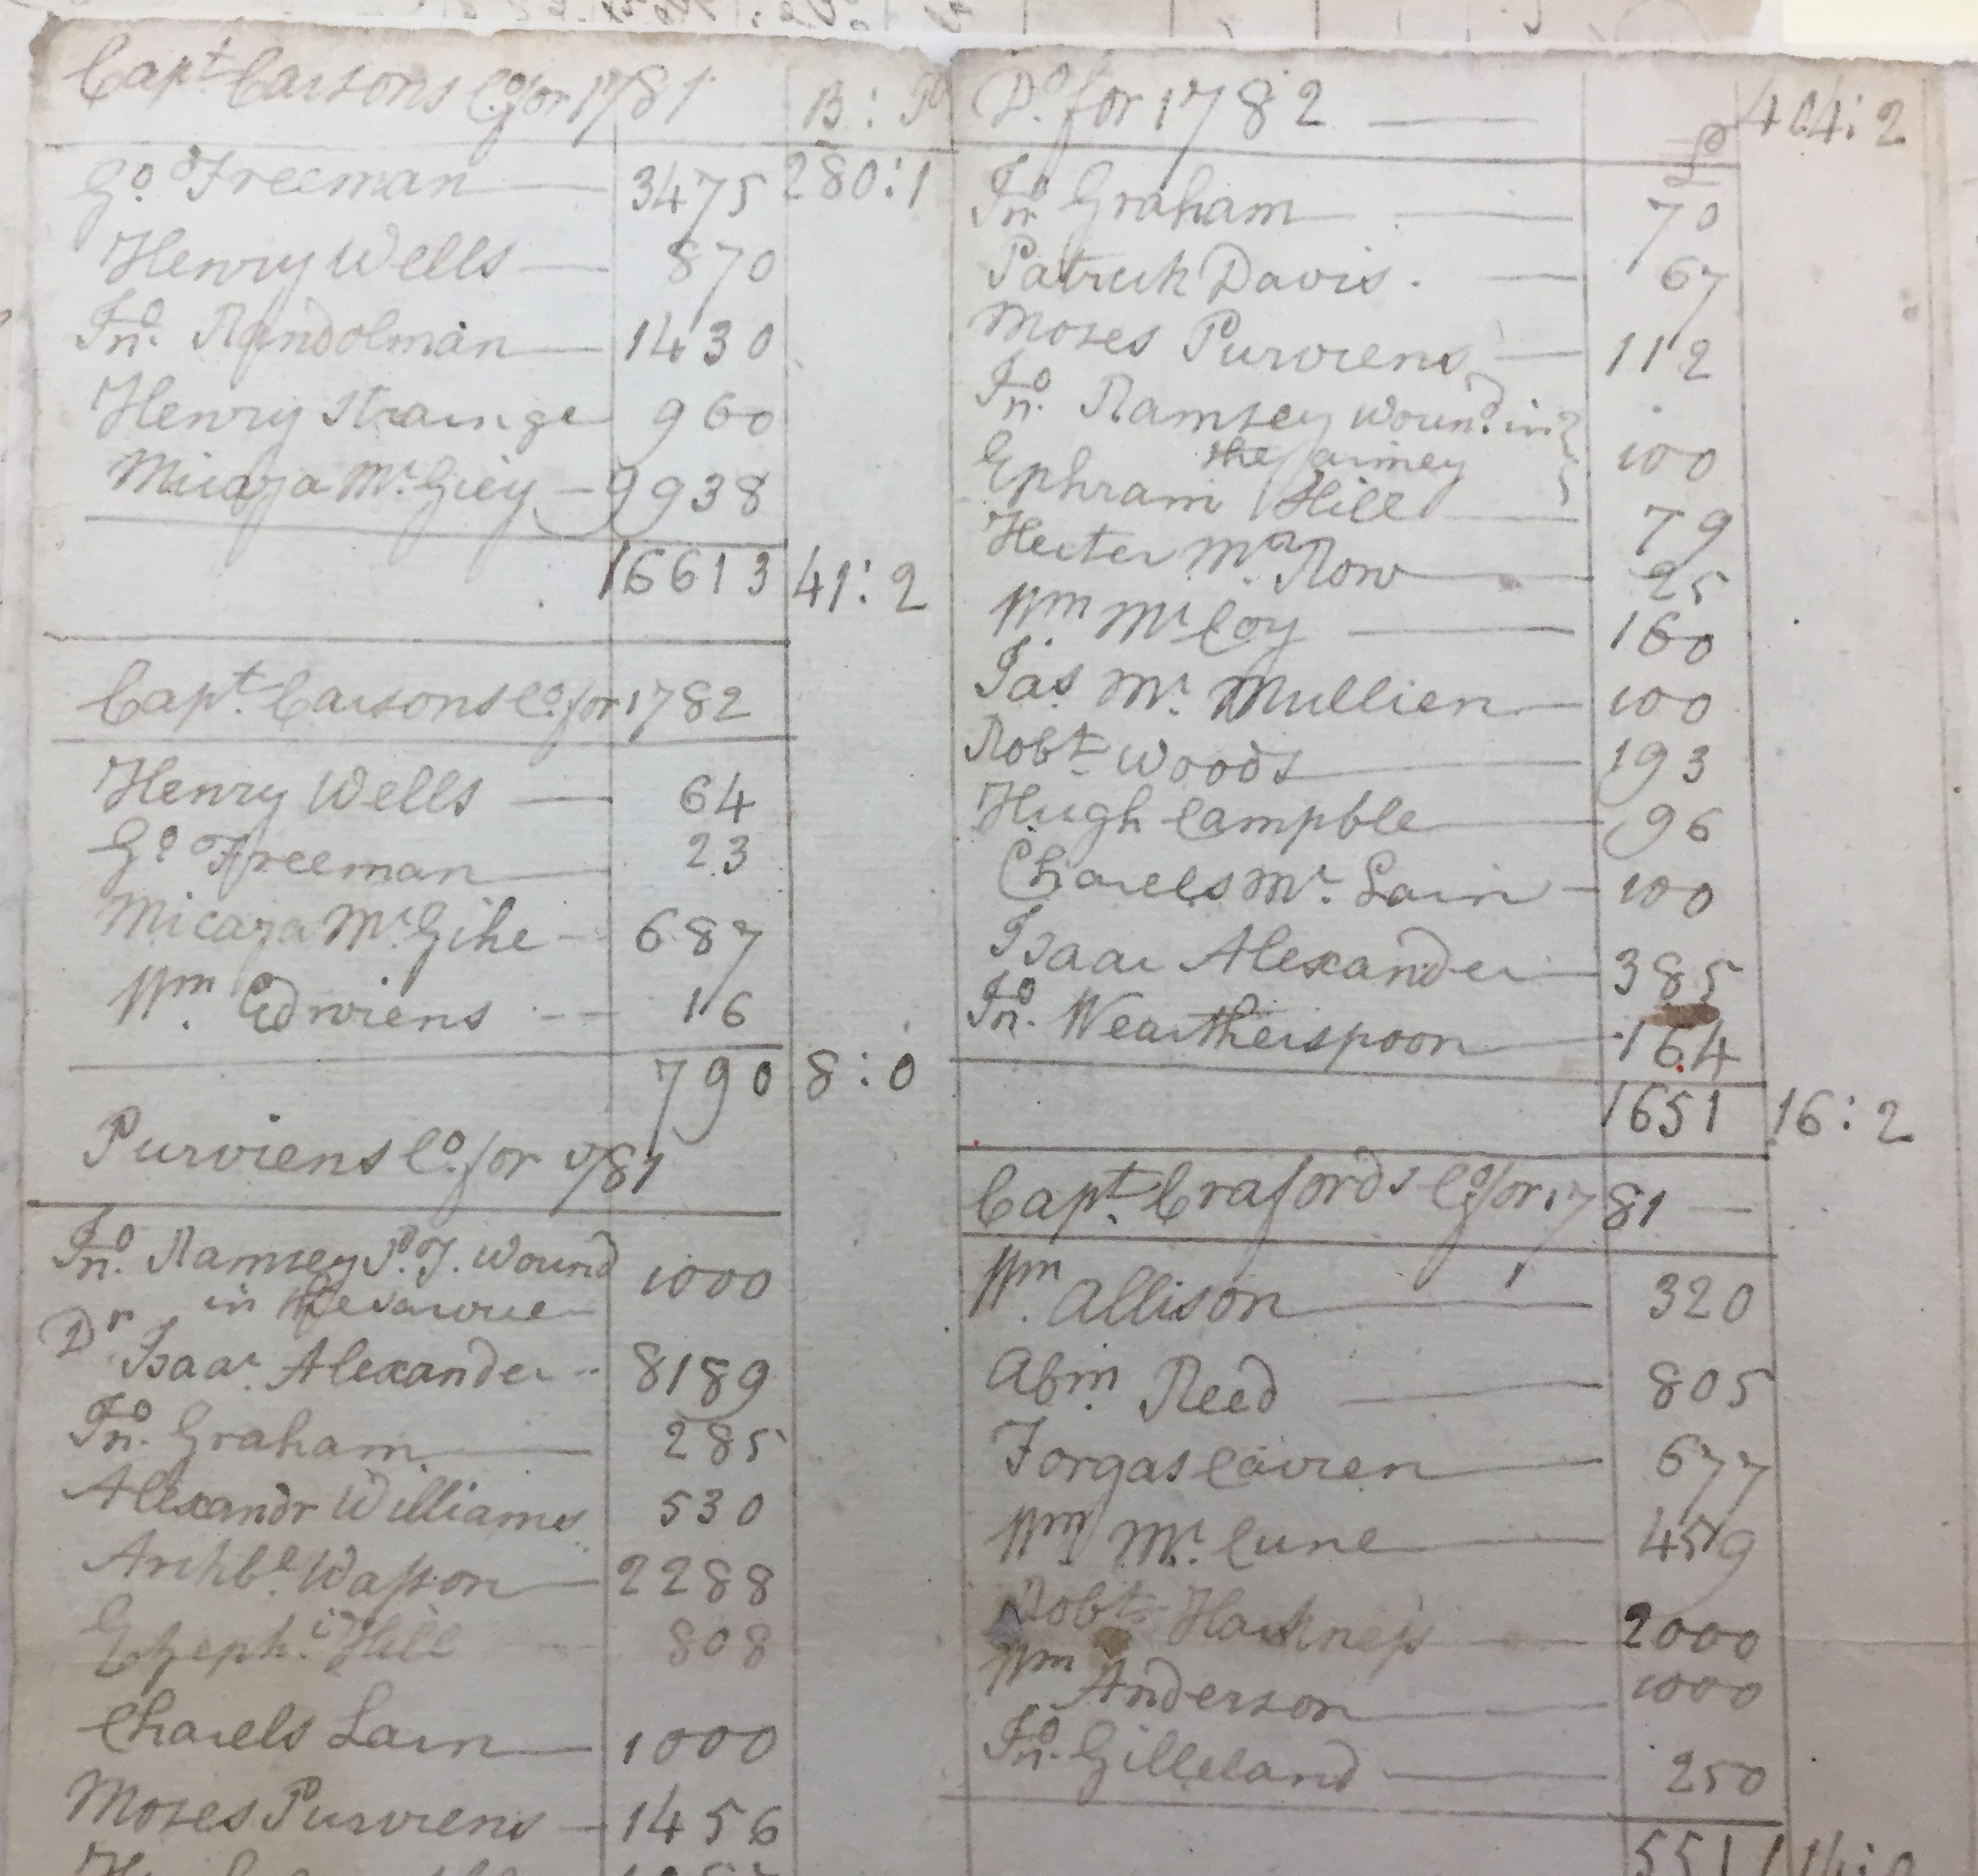 Capt. Carsons Co. for 1781 B : P
Go. Freeman 3475 280:1
Henry Wells 870
Jno. Randolman 1430
Henry Strainge 960
Micaja Mc. Giey 9938
16613 41:2
Capt. Carsons Co. for 1782
Henry Wells 64
Go. Freeman 23
Micaja Mc. Gihe 687
Wm. Edwiens 16
790 8:0
Purviens Co. for 1781
Jno. Ramsey P. J. Wound 1000
in the
Dr. Isaac Alexander 8189
Jno. Graham 285
Alexandr Williams 530
Archbl. Wasson 2288
Hill 808
Charels Lain 1000
Moses Purviens 1456
Do. for 1782 404:2
Jno. Graham 70
Patrick Davis. 67
Moses Purviens 112
Jno. Ramsey Wound. in
the armey 100
Ephraim Hill 79
Hecter Mc. Row 25
Wm Mc Coy 160
Jas. Mc. Mullien 100
Robt. Woods 193
Hugh Campble 96
Charels Mc. Lain 100
Isaac Alexander 385
Jno. Weartherspoon 164
1651 16:2
Capt. Crafords Co. for 1781
Wm. Allison 320
Abm. Reed 805
Forgas Cairen 677
Wm Mc. Cune 459
Robt. Hackneys 2000
Wm Anderson 1000
Jno. Gilleland 250
5511